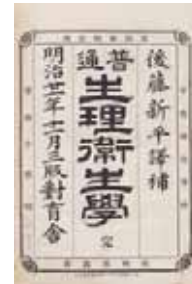 後藤新平譯補
普通
生理衛生學
完
明治廿一年十一月三版對育舍